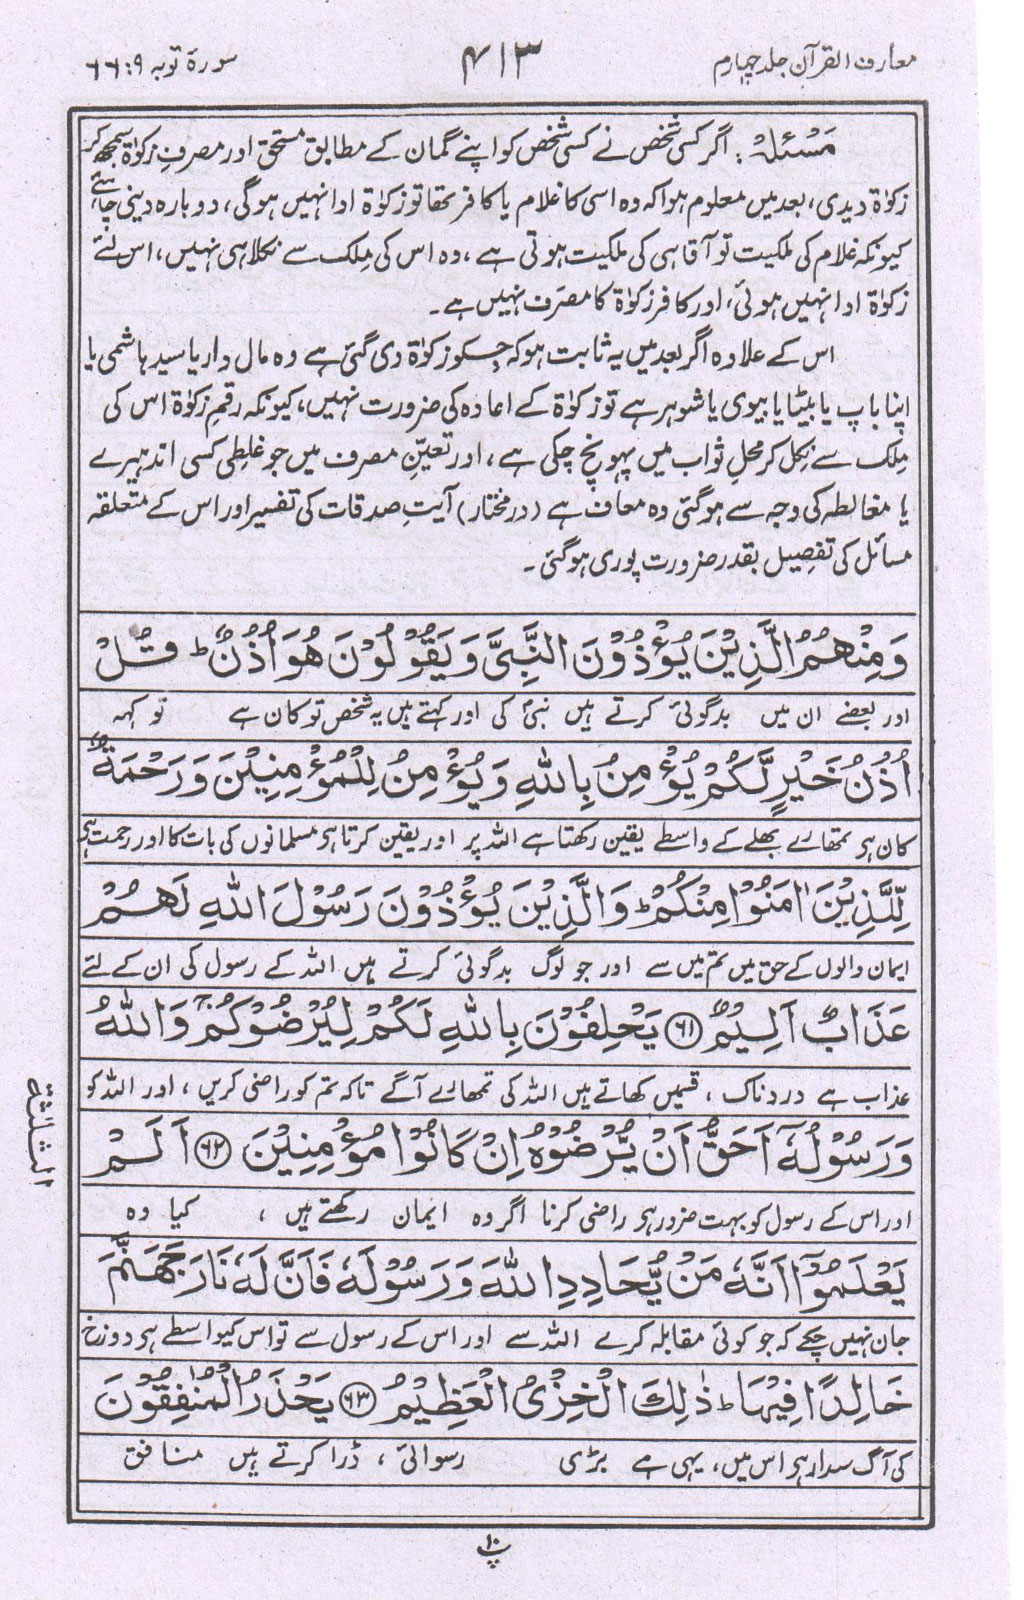 معارف القرآن جلد چہارم
۴۱۳
سورۃ توبہ ۹: ۶۶
مَسْئلہ: اگر کسی شخص نے کسی شخص کو اپنے گمان کے مطابق مستحق اور مصرفِ زکوٰۃ سمجھ کر
زکوٰۃ دیدی، بعد میں معلوم ہوا کہ وہ اسی کا غلام یا کافر تھا تو زکوٰۃ ادا نہیں ہوگی، دوبارہ دینی چاہئے
کیونکہ غلام کی ملکیت تو آقا ہی کی ملکیت ہوتی ہے، وہ اس کی مِلک سے نکلا ہی نہیں، اس لئے
زکوٰۃ ادا نہیں ہوئی، اور کافر زکوٰۃ کا مصرَف نہیں ہے۔
اس کے علاوہ اگر بعد میں یہ ثابت ہو کہ جسکو زکوٰۃ دی گئی ہے وہ مال دار یا سید ہاشمی یا
اپنا باپ یا بیٹا یا بیوی یا شوہر ہے تو زکوٰۃ کے اعادہ کی ضرورت نہیں، کیونکہ رقمِ زکوٰۃ اس کی
مِلک سے نکل کر محلِ ثواب میں پہونچ چکی ہے، اور تعیّنِ مصرف میں جو غلطی کسی اندھیرے
یا مغالطہ کی وجہ سے ہوگئی وہ معاف ہے (درمختار) آیتِ صدقات کی تفسیر اور اس کے متعلقہ
مسائل کی تفصیل بقدر ضرورت پوری ہوگئی۔
وَمِنْهُمُ الَّذِيْنَ يُؤْذُوْنَ النَّبِيَّ وَيَقُوْلُوْنَ هُوَ اُذُنٌ ؕ قُلْ
اور بعضے ان میں بدگوئی کرتے ہیں نبی کی اور کہتے ہیں یہ شخص تو کان ہے تو کہہ
اُذُنُ خَيْرٍ لَّكُمْ يُؤْمِنُ بِاللّٰهِ وَيُؤْمِنُ لِلْمُؤْمِنِيْنَ وَرَحْمَةٌ
کان ہی تمھارے بھلے کے واسطے یقین رکھتا ہے اللہ پر اور یقین کرتا ہی مسلمانوں کی بات کا اور رحمت ہی
لِّلَّذِيْنَ اٰمَنُوْا مِنْكُمْ ؕ وَالَّذِيْنَ يُؤْذُوْنَ رَسُوْلَ اللّٰهِ لَهُمْ
ایمان والوں کے حق میں تم میں سے اور جو لوگ بدگوئی کرتے ہیں اللہ کے رسول کی ان کے لئے
عَذَابٌ اَلِيْمٌ ﴿۶۱﴾ يَحْلِفُوْنَ بِاللّٰهِ لَكُمْ لِيُرْضُوْكُمْ ۚ وَاللّٰهُ
عذاب ہے دردناک، قسمیں کھاتے ہیں اللہ کی تمھارے آگے تاکہ تم کو راضی کریں، اور اللہ کو
وَرَسُوْلُهٗٓ اَحَقُّ اَنْ يُّرْضُوْهُ اِنْ كَانُوْا مُؤْمِنِيْنَ ﴿۶۲﴾ اَلَمْ
اور اس کے رسول کو بہت ضرور ہی راضی کرنا اگر وہ ایمان رکھتے ہیں، کیا وہ
يَعْلَمُوْٓا اَنَّهٗ مَنْ يُّحَادِدِ اللّٰهَ وَرَسُوْلَهٗ فَاَنَّ لَهٗ نَارَ جَهَنَّمَ
جان نہیں چکے کہ جو کوئی مقابلہ کرے اللہ سے اور اس کے رسول سے تو اس کیواسطے ہی دوزخ
خَالِدًا فِيْهَا ؕ ذٰلِكَ الْخِزْيُ الْعَظِيْمُ ﴿۶۳﴾ يَحْذَرُ الْمُنٰفِقُوْنَ
کی آگ سدا رہی اس میں، یہی ہے بڑی رسوائی، ڈرا کرتے ہیں منافق
الثلثۃ
پ۱۰